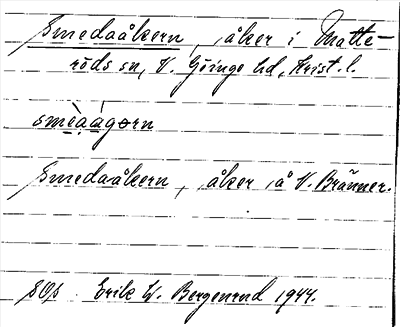 Smedaåkern, åker i Matte-
röds sn, V. Göinge hd, Krist. l.
smèaágorn
Smedaåkern, åker å V. Bränner.
SOp Erik W. Bergenrud 1944.